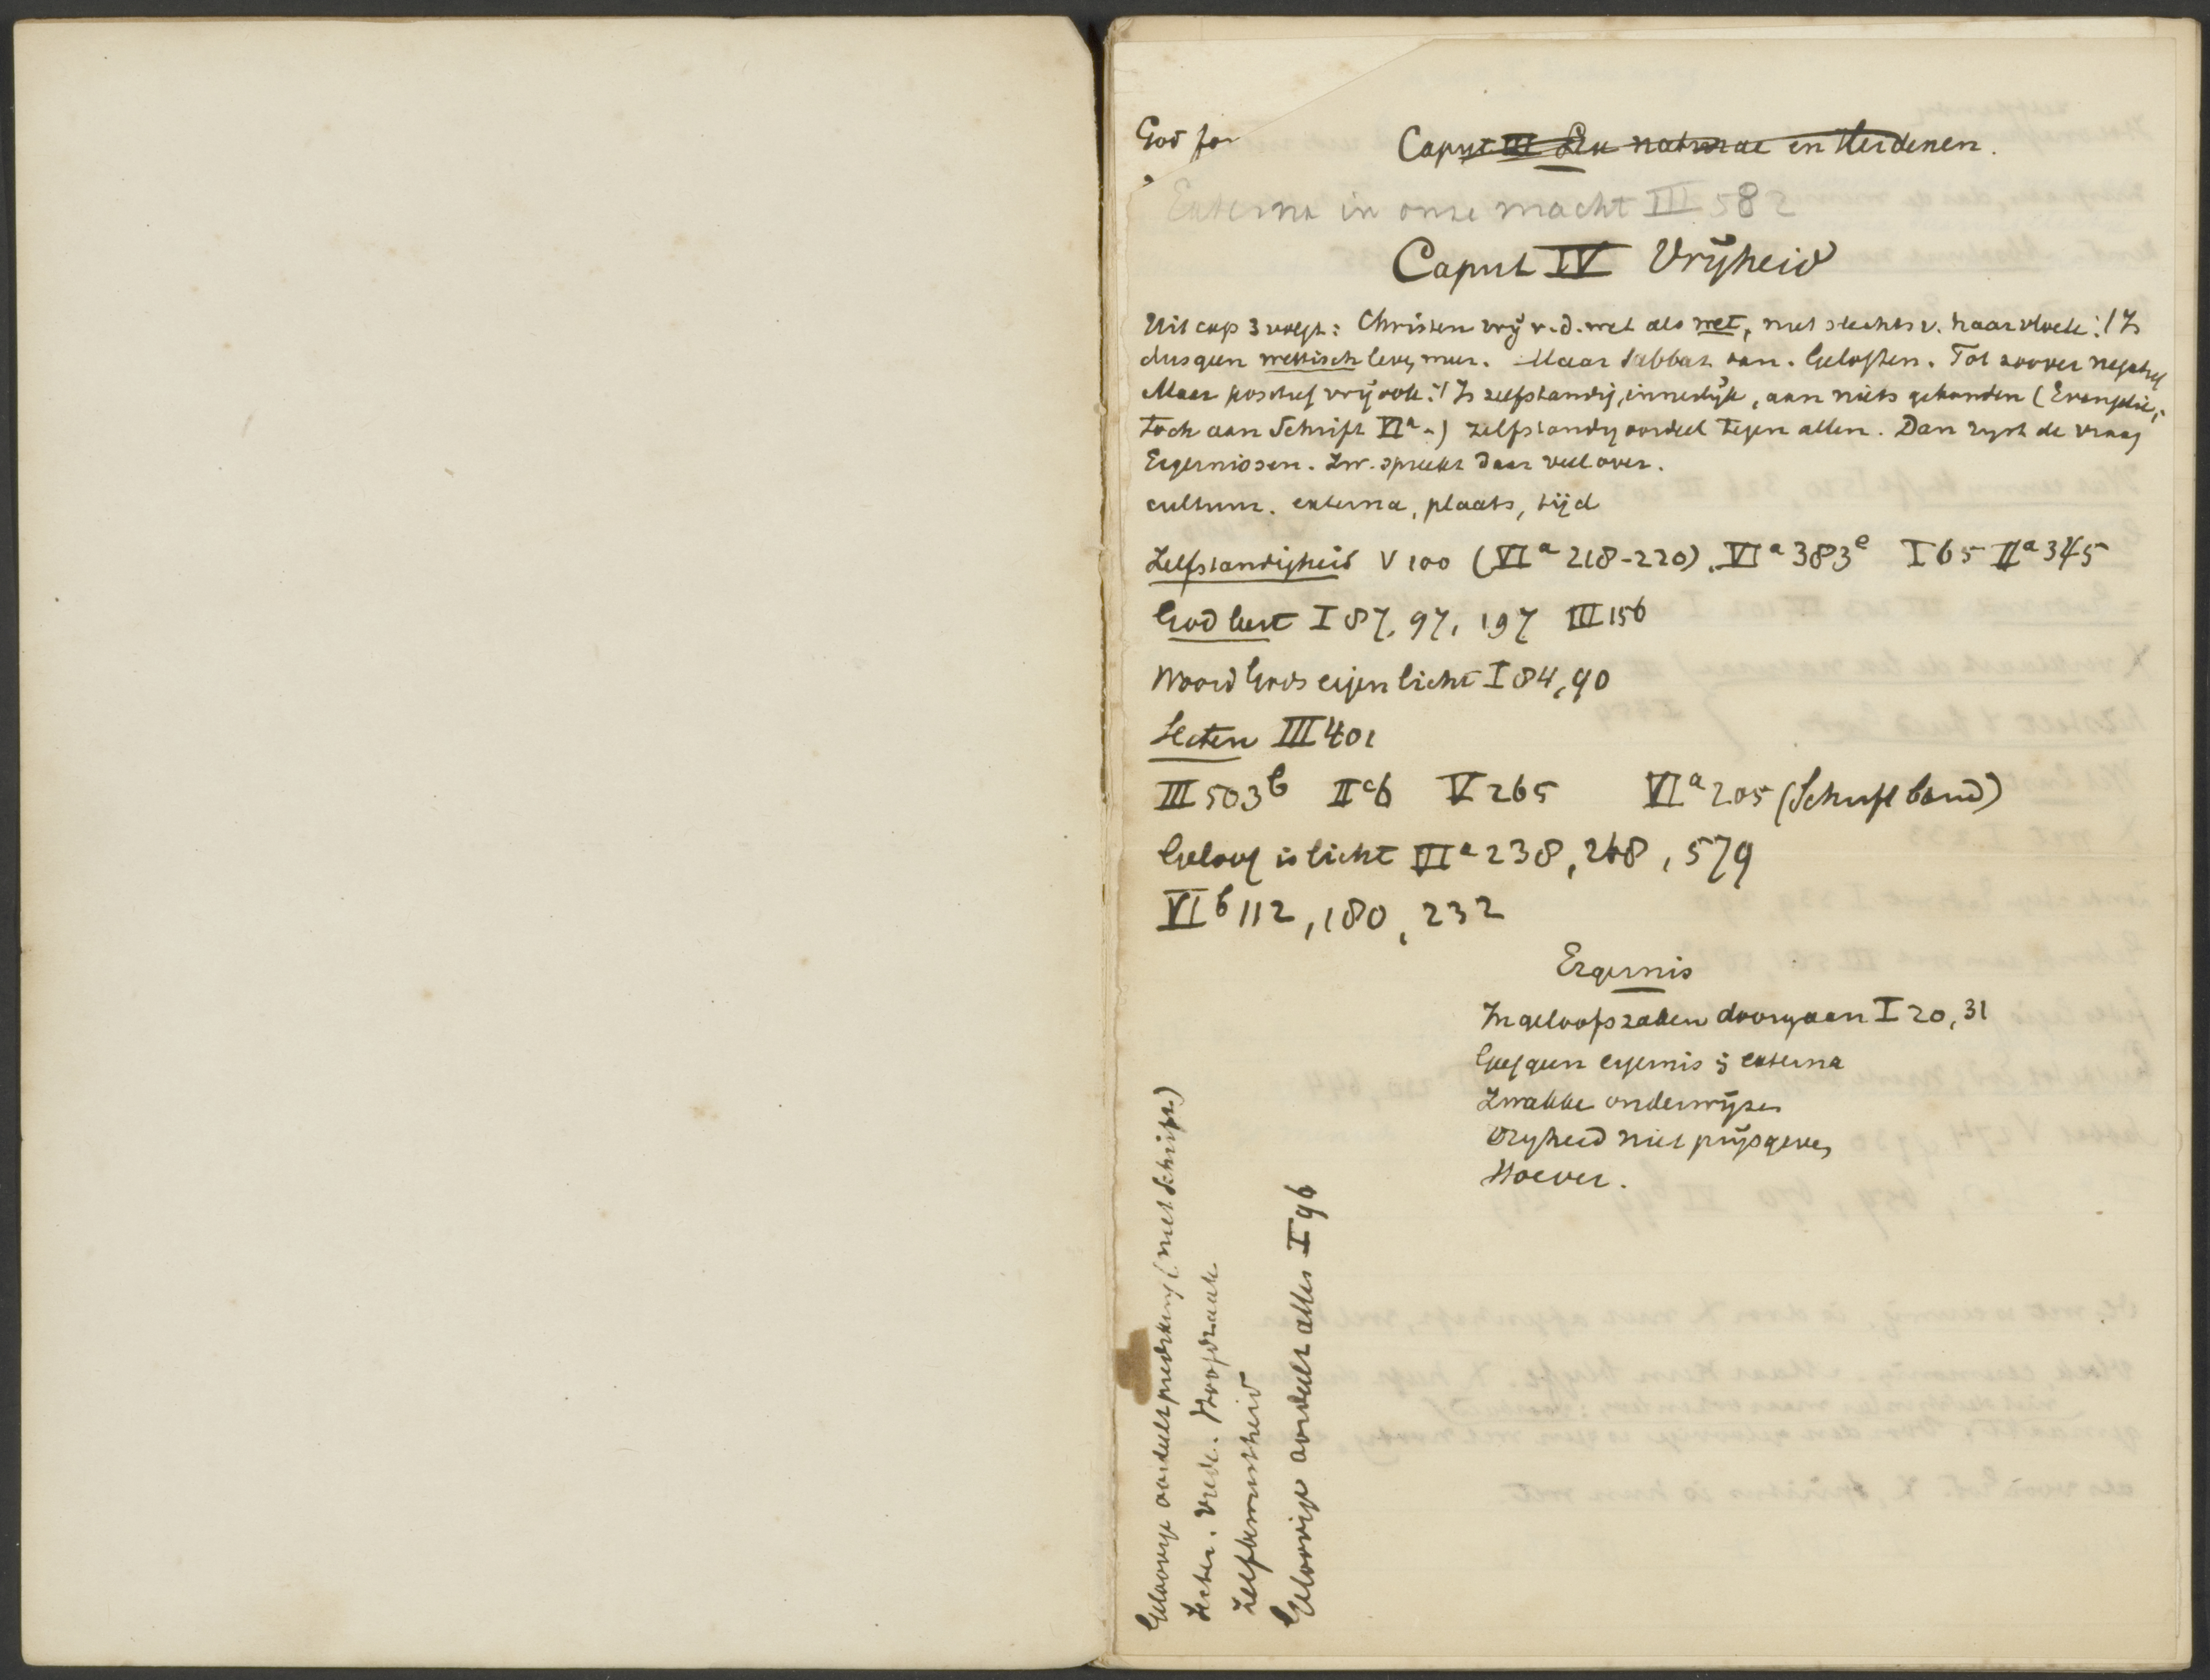 God
Caput III Lex naturae en Heidenen.
Externa in onze macht III 582
Caput IV Vrijheid
Uit cap 3 volgt: Christen vrij v. d. wet als wet, niet slechts v. haar vloek:! Is
dus geen wettisch leven meer. Maar Sabbat dan. Geloften. Tot zoover negatief
Maar positief vrij ook:! Is zelfstandig, innerlijk, aan niets gebonden (Evangelie,
toch aan Schrift VIa.) zelfstandig oordeel tegen allen. Dan rijst de vraag
Ergernissen. Zw. spreekt daar veel over.
cultum. externa, plaats, tijd
Zelfstandigheid V 100 (VIa 218-220). VIa 383e I 65 IIa 345
God leert I 87, 97, 197 III 156
Woord Gods eigen licht I 84, 90
Secten III 401
III 503b IIc6 V 265 VIa 205 (Schrift band)
Geloof is licht VIa 238, 248, 579
VIb 112, 180, 232
Ergernis
In geloofszaken doorgaan I 20, 31
Geef geen ergernis in externa
Zwakke onderwijzen
Vrijheid niet prijsgeven
Hoever.
Geloovige oordeelt prediking (met Schrift)
Secten. Vrede. Hoofdzaak
Zelfbewustheid
Geloovige oordeelt alles I 96